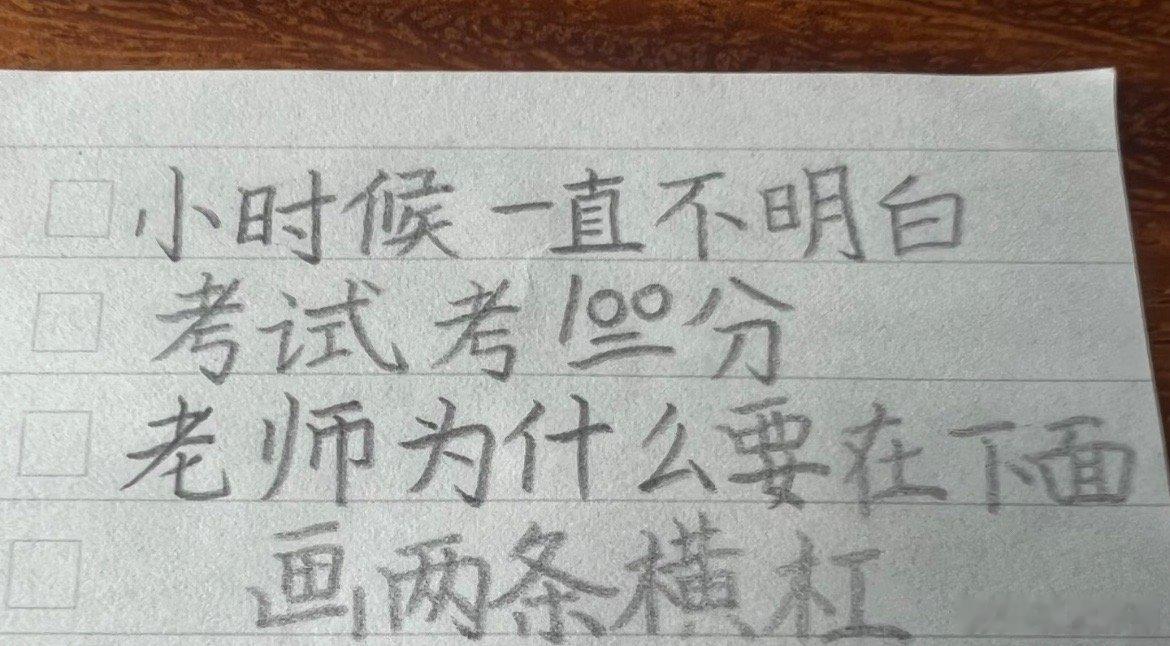 小时候一直不明白
考试考100分
老师为什么要在下面
画两条横杠